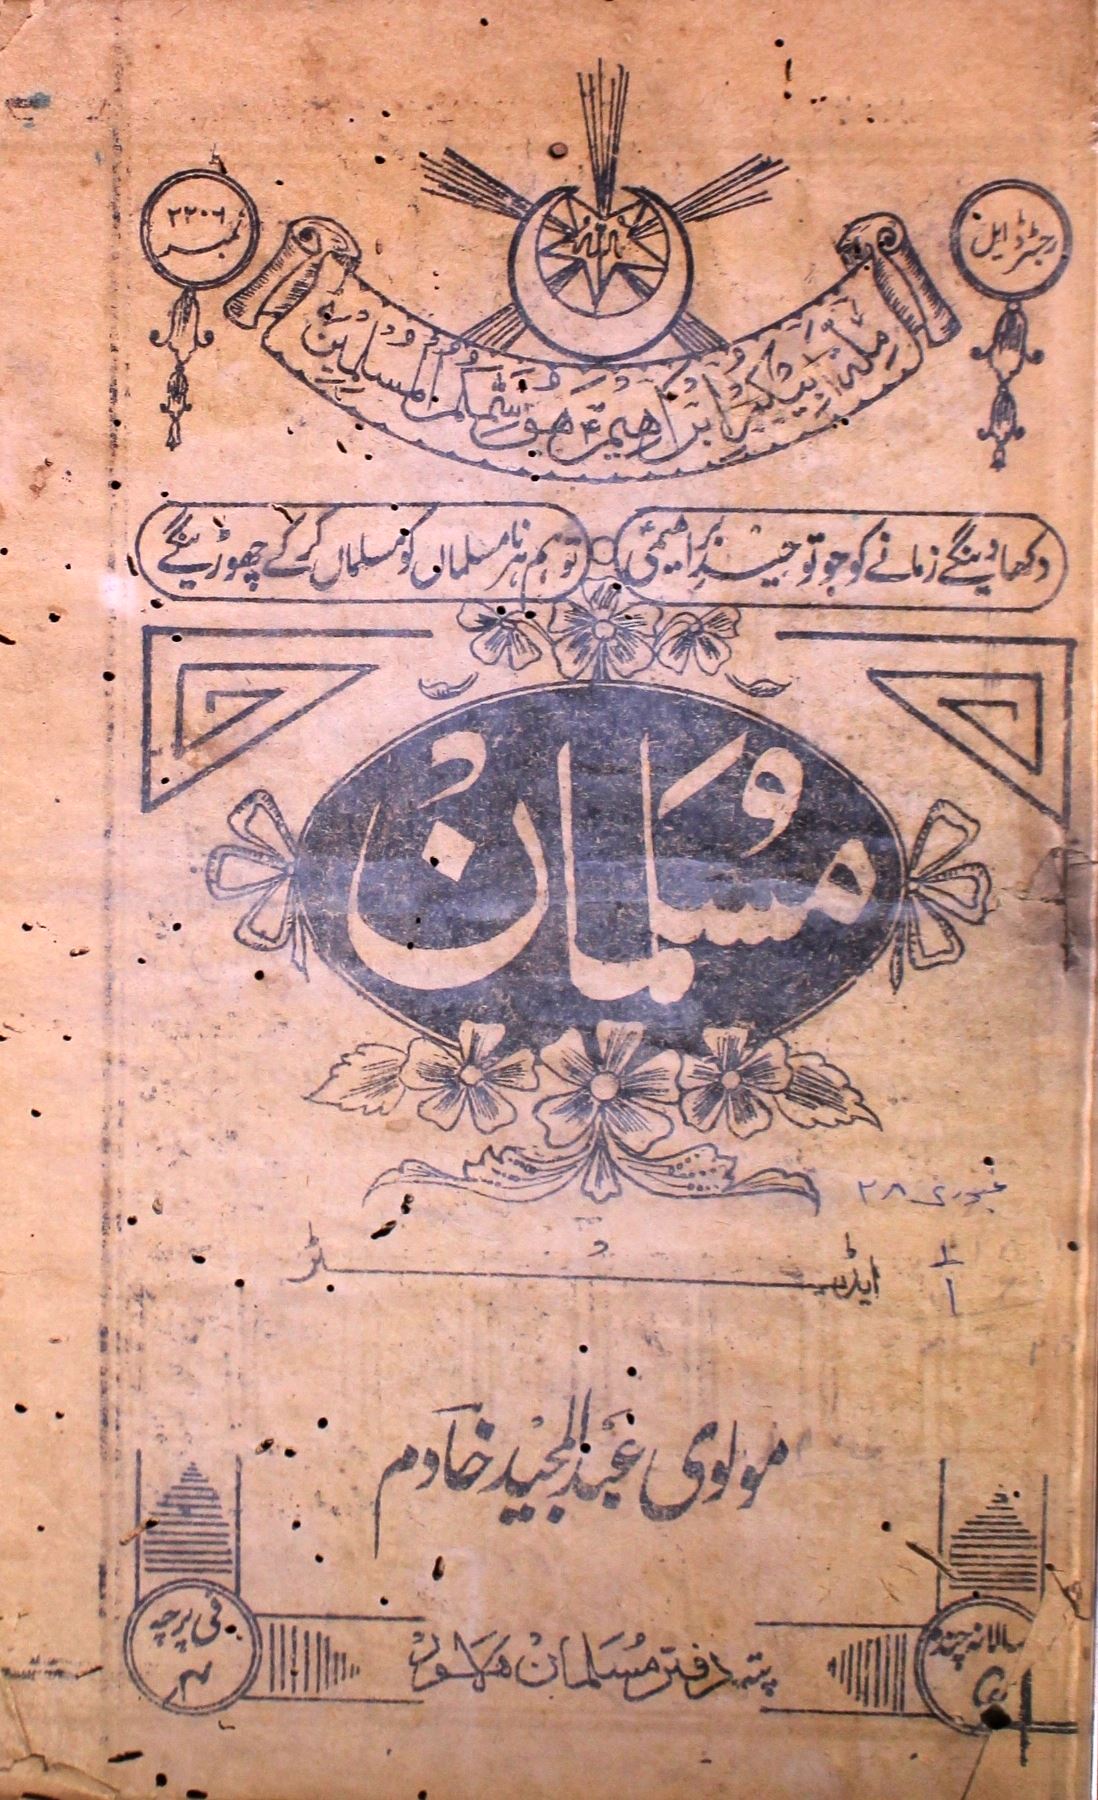 رجسٹرڈ ایل
نمبر ۲۲۰۶
اللہ
مِلَّةَ اَبِيْكُمْ اِبْرَاهِيْمَ هُوَ سَمّٰكُمُ الْمُسْلِمِيْنَ
دکھا دینگے زمانے کو جو تو حید براہیمی
تو ہم ہر نامسلماں کو مسلماں کر کے چھوڑینگے
مسلمان
جنوری ۲۸
۱
۱
ایڈیٹر
مولوی عبد المجید خادم
سالانہ چندہ
فی پرچہ
۴ر
پتہ دفتر مسلمان لاہور